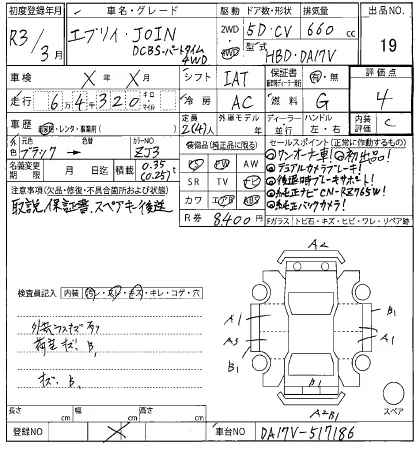 初度登録年月 車名・グレード 駆動 ドア数・形状 排気量 出品NO.
R3/3月 エブリイ・JOIN DCBS・パートタイム4WD 2WD・4WD 5D・CV 660cc 19
型式 HBD-DA17V
車検 X年X月 シフト IAT 保証書 有・無 評価点
走行 64320 キロ マイル 冷房 AC 燃料 G 4
車歴 自家用・レンタ・事業用( ) 定員 2(4)人 外車モデル 年 ディーラー 並行 ハンドル 左・右 内装 C
外色 元色 ブラック→ 色替 カラーNO ZJ3
装備品(純正品に限る)
PS PW AW
SR TV ナビ
カワ エアB ABS
R券 8,400円
セールスポイント(正常に作動するもの)
◎ワンオーナ車!◎初出品!
◎デュアルカメラブレーキ!
◎後退時ブレーキサポート!
◎純正ナビCN-RZ765W!
◎純正バックカメラ!
名義変更期限 月 日迄 積載 0.35(0.25)t
注意事項(欠品・修復・不具合箇所および状態)
取説、保証書、スペアキー後送
Fガラス トビ石・キズ・ヒビ・ワレ・リペア跡
検査員記入 内装 汚レ・スレ・キズ・キレ・コゲ・穴
外装うすキズ有り
荷室キズ、B1
キズ、B1
A2
A1
A3
B1
B1
A1
B1
A2B1
スペア
長さ cm 幅 cm 高さ cm
登録NO 車台NO DA17V-517186